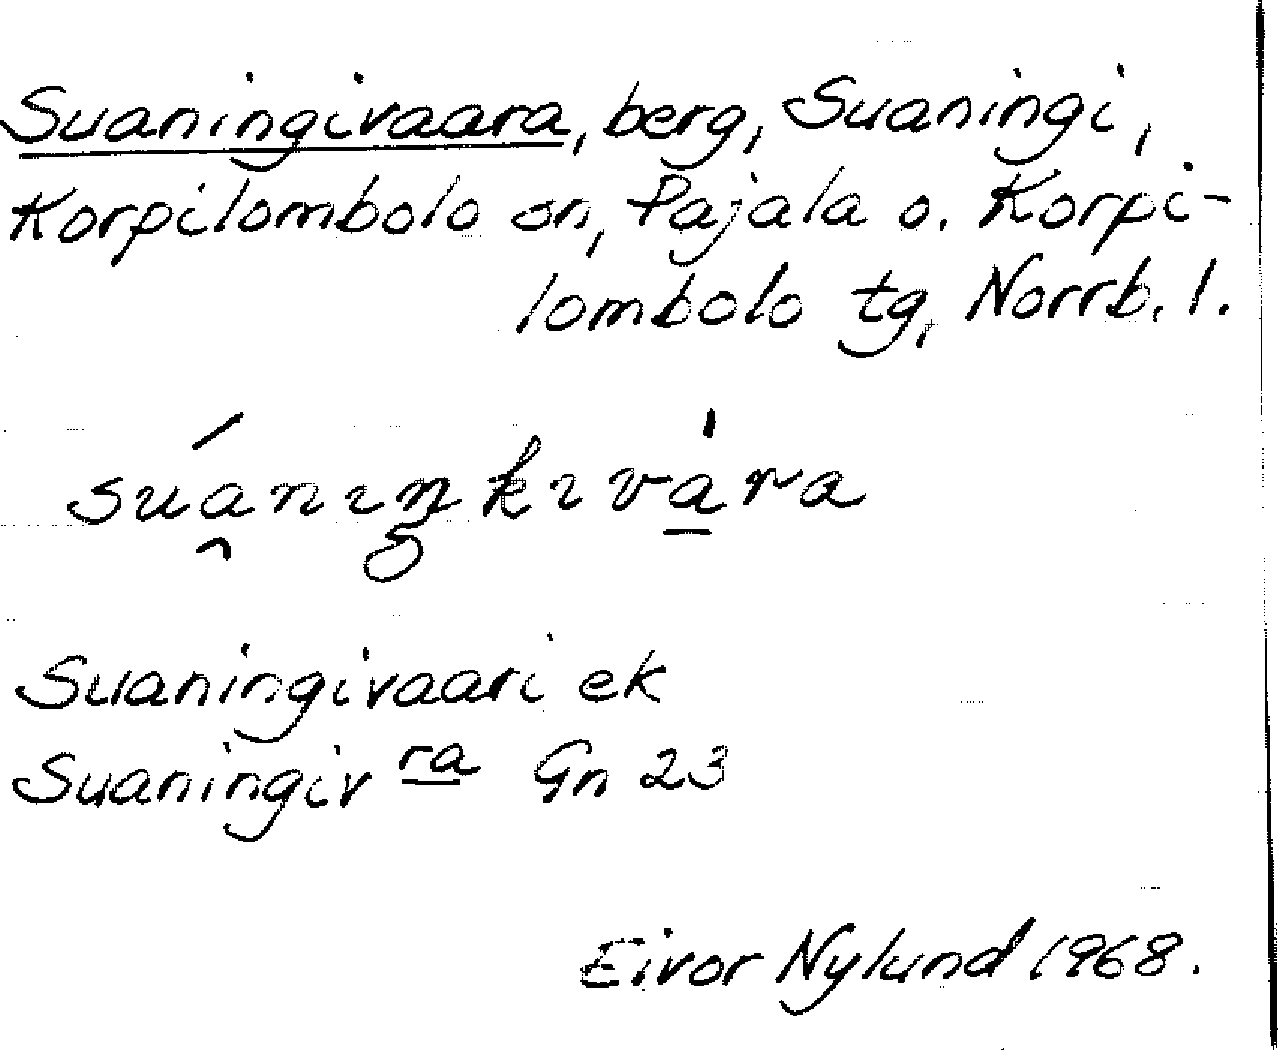 Suaningivaara, berg, Suaningi,
Korpilombolo sn, Pajala o. Korpi-
lombolo tg, Norrb. l.
suáninkivàra
Suaningivaari ek
Suaningiv ra Gn 23
Eivor Nylund 1968.